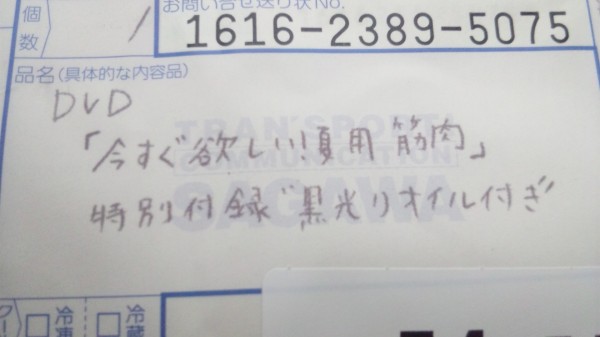 お問い合せ送り状No.
個数
1
1616-2389-5075
品名(具体的な内容品)
DVD
「今すぐ欲しい!夏用 筋肉」
特別付録"黒光りオイル付き"
TRANSPORT
COMMUNICATION
SAGAWA
冷凍
冷蔵